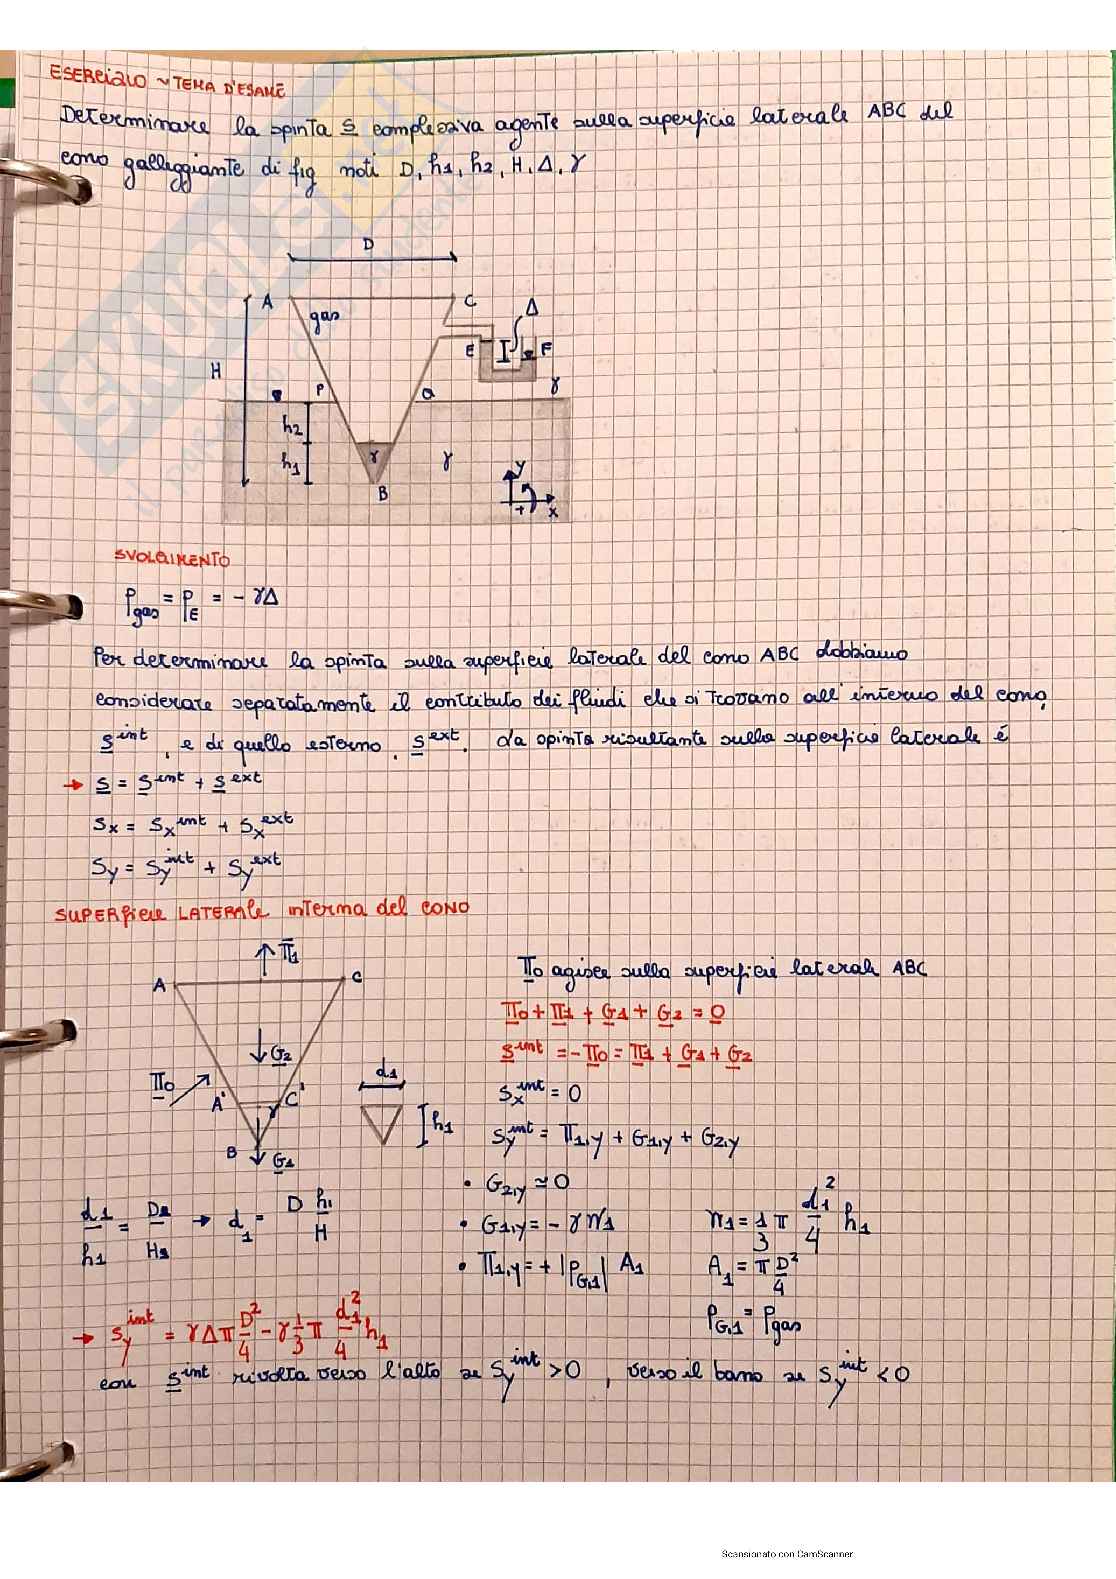 ESERCIZIO ~ TEMA D'ESAME
Determinare la spinta S complessiva agente sulla superficie laterale ABC del
cono galleggiante di fig noti D, h1, h2, H, Δ, γ
D
A
C
gas
Δ
E
F
H
P
Q
γ
h2
h1
γ
γ
B
y
+
x
SVOLGIMENTO
Pgas = PE = - γΔ
Per determinare la spinta sulla superficie laterale del cono ABC dobbiamo
considerare separatamente il contributo dei fluidi che si trovano all'interno del cono,
S^int, e di quello esterno, S^ext. La spinta risultante sulla superficie laterale è
→ S = S^int + S^ext
Sx = Sx^int + Sx^ext
Sy = Sy^int + Sy^ext
SUPERficie LATERALE interna del CONO
Π1
A
C
G2
Π0
A'
C'
γ
B
G1
d1
h1
Π0 agisce sulla superficie laterale ABC
Π0 + Π1 + G1 + G2 = 0
S^int = - Π0 = Π1 + G1 + G2
Sx^int = 0
Sy^int = Π1,y + G1,y + G2,y
• G2,y ≃ 0
• G1,y = - γ W1
W1 = 1/3 π d1²/4 h1
• Π1,y = + |PG,1| A1
A1 = π D²/4
PG,1 = Pgas
→ d1 = D h1/H
→ Sy^int = γΔπ D²/4 - γ 1/3 π d1²/4 h1
con S^int rivolta verso l'alto se Sy^int > 0, verso il basso se Sy^int < 0
Scansionato con CamScanner